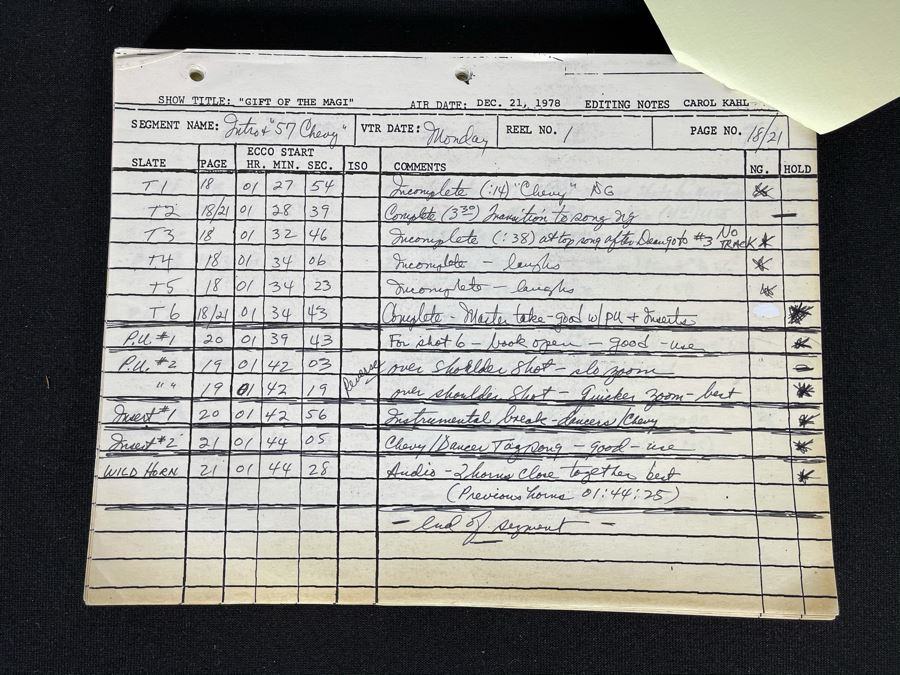 SHOW TITLE: "GIFT OF THE MAGI" AIR DATE: DEC. 21, 1978 EDITING NOTES CAROL KAHL
SEGMENT NAME: Intro & "57 Chevy" VTR DATE: Monday REEL NO. 1 PAGE NO. 18/21
ECCO START
SLATE PAGE HR. MIN. SEC. ISO COMMENTS NG. HOLD
T1 18 01 27 54 Incomplete (:14) "Chevy" NG
T2 18/21 01 28 39 Complete (3:30) Transition to song ng
T3 18 01 32 46 Incomplete (:38) at top song after Dean go to #3 NO TRACK
T4 18 01 34 06 Incomplete - laughs
T5 18 01 34 23 Incomplete - laughs
T6 18/21 01 34 43 Complete - Master take - good w/ PU & Inserts
P.U. #1 20 01 39 43 For shot 6 - book open - good - use
P.U. #2 19 01 42 03 Reverse over shoulder Shot - slo zoom
" " 19 01 42 19 over shoulder Shot - Quicker zoom - best
Insert #1 20 01 42 56 Instrumental break - dancers/Chevy
Insert #2 21 01 44 05 Chevy/Dancer Tag song - good - use
WILD HORN 21 01 44 28 Audio - 2 horns close together best
(Previous horns 01:44:25)
- end of segment -